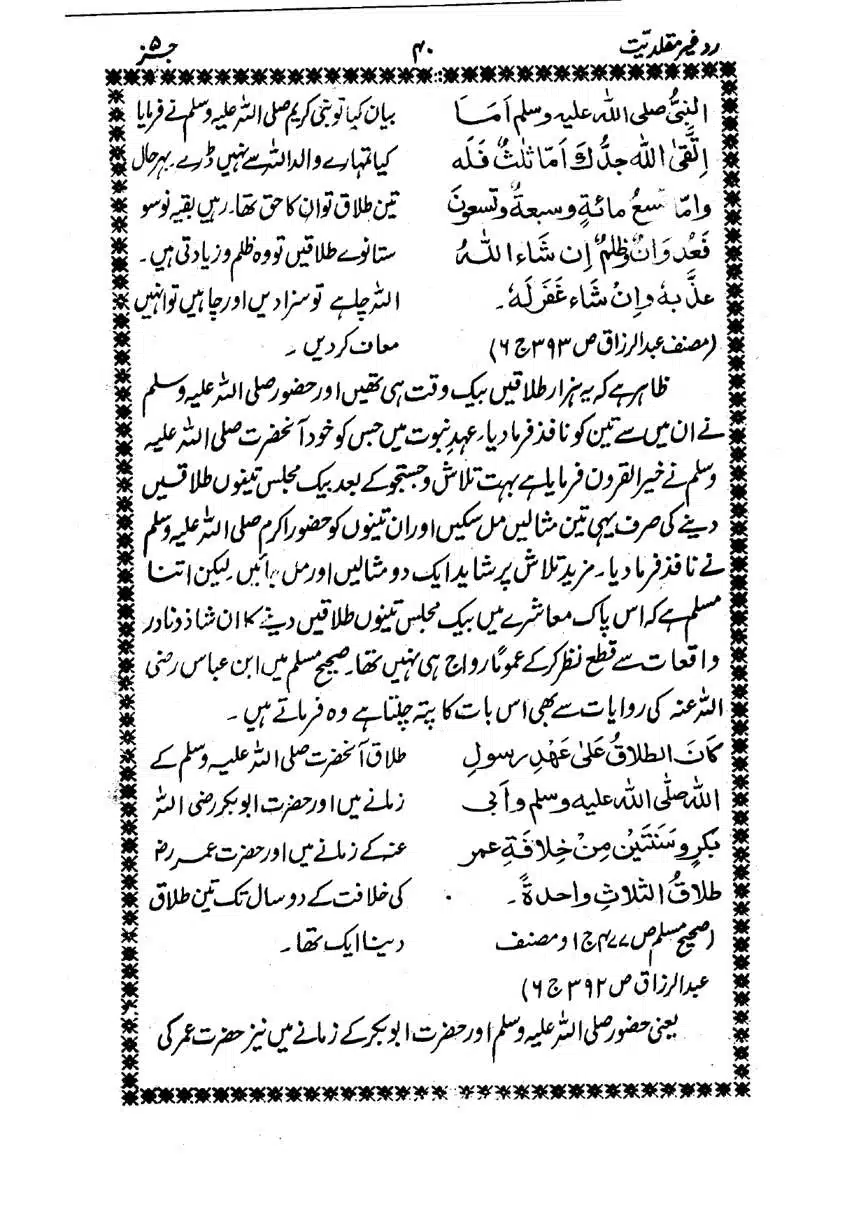 رد غیر مقلدیت ۴۰ جشز ۵
النبیُّ صلی اللہ علیہ وسلم اَمَا بیان کیا تو نبی کریم صلی اللہ علیہ وسلم نے فرمایا
اِتَّقیٰ اللہ جدُّكَ اَمّا ثلٰثٌ فَلَه کیا تمہارے والد اللہ سے نہیں ڈرے۔ بہر حال
وامّا تسعُ مائةٍ وسبعةٌ وتسعونَ تین طلاق تو ان کا حق تھا۔ رہیں بقیہ نو سو
فَعُدوَانٌ وّظلمٌ اِن شَاءَ اللهُ ستانوے طلاقیں تو وہ ظلم و زیادتی ہیں۔
عذَّبهٗ واِنْ شاءَ غَفَرَلَهٗ۔ اللہ چاہے تو سزا دیں اور چاہیں تو انہیں
(مصنف عبدالرزاق ص ۳۹۳ ج ۶) معاف کردیں۔
ظاہر ہے کہ یہ ہزار طلاقیں بیک وقت ہی تھیں اور حضور صلی اللہ علیہ وسلم
نے ان میں سے تین کو نافذ فرما دیا۔ عہد نبوت میں جس کو خود آنحضرت صلی اللہ علیہ
وسلم نے خیر القرون فرمایا ہے بہت تلاش و جستجو کے بعد بیک مجلس تینوں طلاقیں
دینے کی صرف یہی تین مثالیں مل سکیں اور ان تینوں کو حضور اکرم صلی اللہ علیہ وسلم
نے نافذ فرما دیا۔ مزید تلاش پر شاید ایک دو مثالیں اور مل جائیں۔ لیکن اتنا
مسلم ہے کہ اس پاک معاشرے میں بیک مجلس تینوں طلاقیں دینے کا ان شاذ و نادر
واقعات سے قطع نظر کر کے عموماً رواج ہی نہیں تھا۔ صحیح مسلم میں ابن عباس رضی
اللہ عنہ کی روایات سے بھی اس بات کا پتہ چلتا ہے وہ فرماتے ہیں۔
کَانَ الطلاقُ عَلیٰ عَهْدِ رسولِ طلاق آنحضرت صلی اللہ علیہ وسلم کے
اللہ صلَّی اللہ علیہ وسلم واَبی زمانے میں اور حضرت ابوبکر رضی اللہ
بکرٍ وسَنَتَیْنِ مِنْ خِلافَةِ عمر عنہ کے زمانے میں اور حضرت عمر رض
طلاقُ الثلاثِ واحدةً۔ کی خلافت کے دو سال تک تین طلاق
(صحیح مسلم ص ۴۷۷ ج ۱ و مصنف دینا ایک تھا۔
عبدالرزاق ص ۳۹۲ ج ۶)
یعنی حضور صلی اللہ علیہ وسلم اور حضرت ابوبکر کے زمانے میں نیز حضرت عمر کی